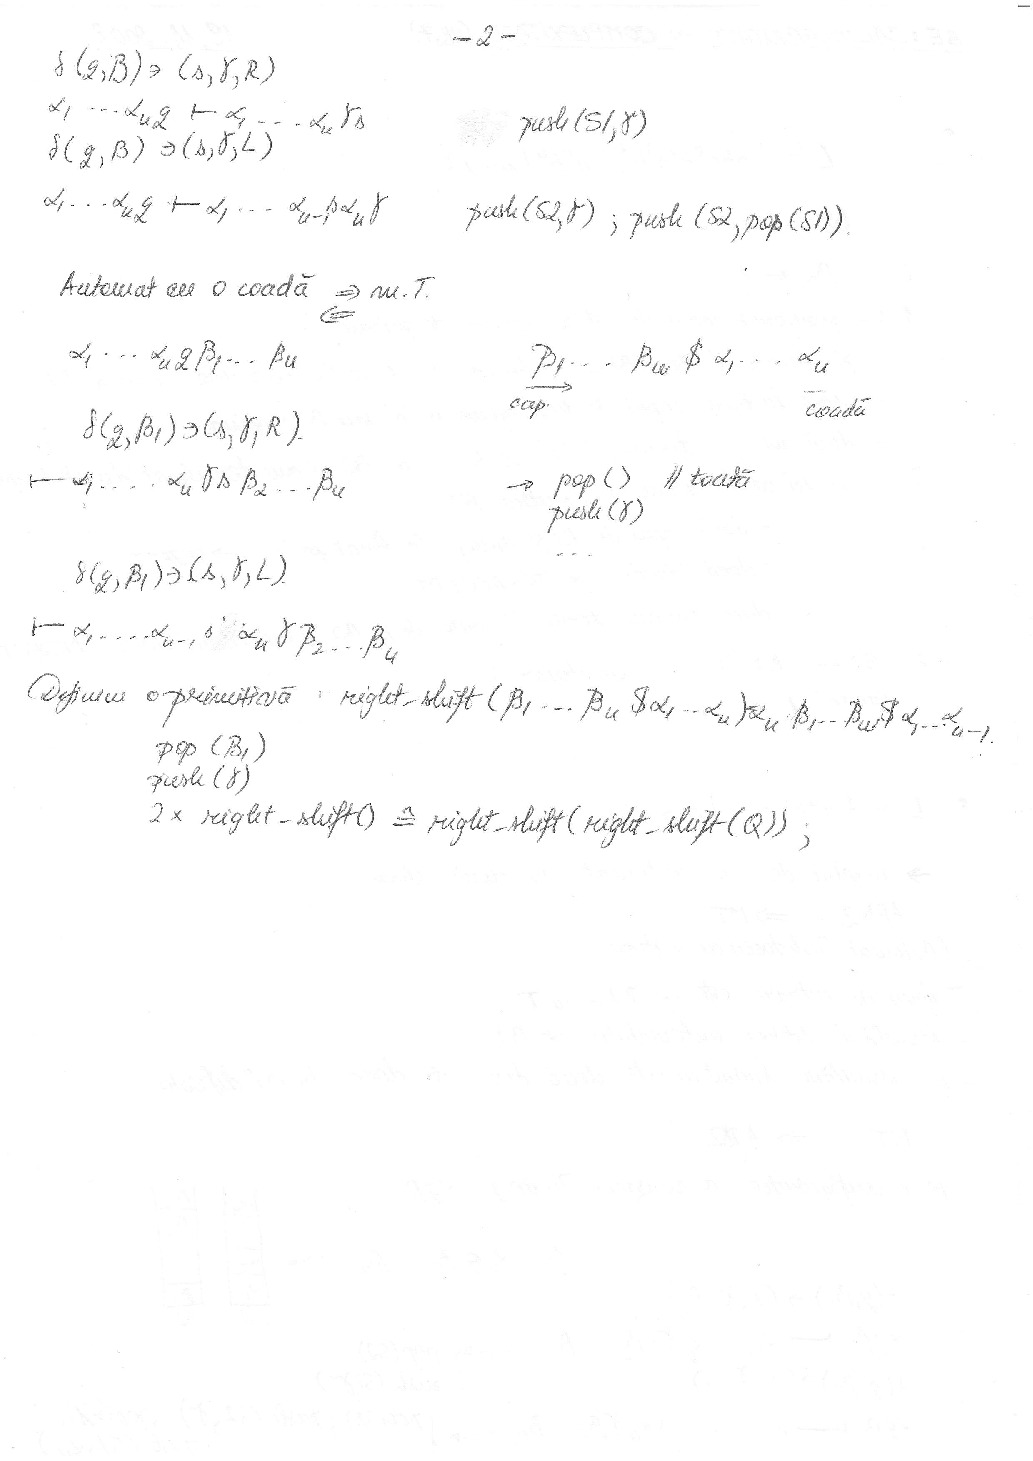 - 2 -
δ(q, B) ∋ (s, γ, R)
α₁ ... αₙ q ⊢ α₁ .... αₙ γ s push(S1, γ)
δ(q, B) ∋ (s, γ, L)
α₁ ... αₙ q ⊢ α₁ ... αₙ₋₁ s αₙ γ push(S2, γ) ; push(S2, pop(S1)).
Automat cu o coadă ⇒ m. T.
⇐
α₁ ... αₙ q β₁ ... βₘ β₁ ... βₘ $ α₁ ... αₙ
cap. coadă
δ(q, β₁) ∋ (s, γ, R).
⊢ α₁ .... αₙ γ s β₂ ... βₘ → pop() // toată
push(γ)
...
δ(q, β₁) ∋ (s, γ, L).
⊢ α₁ ..... αₙ₋₁ s αₙ γ β₂ ... βₘ
Definim o primitivă : right_shift(β₁ ... βₘ $ α₁ .. αₙ) = αₙ β₁ ... βₘ $ α₁ ... αₙ₋₁.
pop (β₁)
push(γ)
2 x right_shift() ≙ right_shift(right_shift(Q)) ;